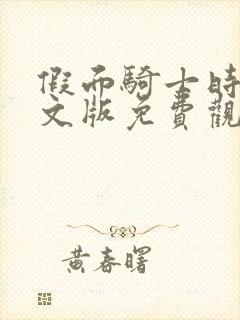 假面騎士時
文版免費觀
黃春曙